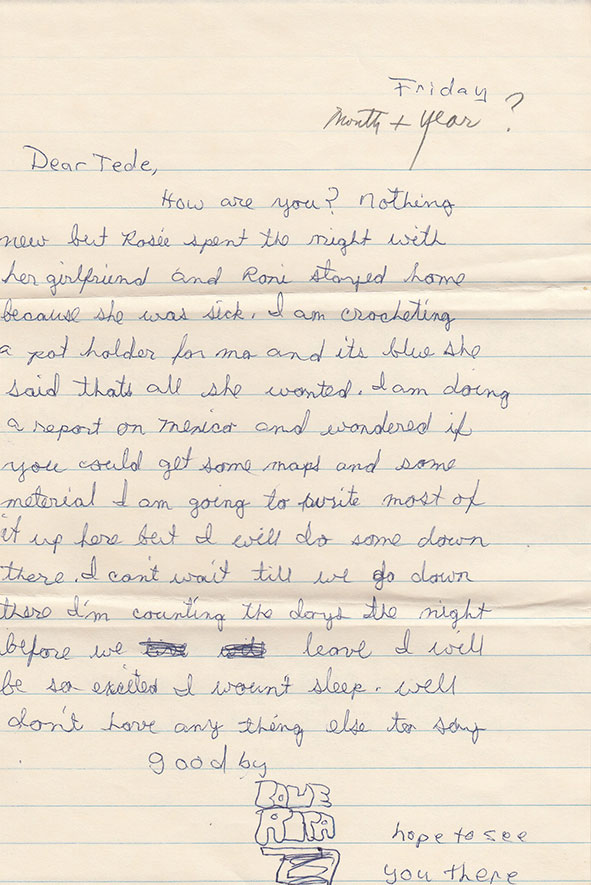 Friday
Month + Year ?
Dear Tede,
How are you? Nothing
new but Rosée spent the night with
her girlfriend and Roni stayed home
because she was sick. I am crocheting
a pot holder for ma and its blue she
said thats all she wanted. I am doing
a report on Mexico and wondered if
you could get some maps and some
meterial I am going to write most of
it up here but I will do some down
there. I can't wait till we go down
there I'm counting the days the night
before we leave I will
be so excited I woun't sleep. well
don't have any thing else to say
good by
LOVE
RITA
hope to see
you there